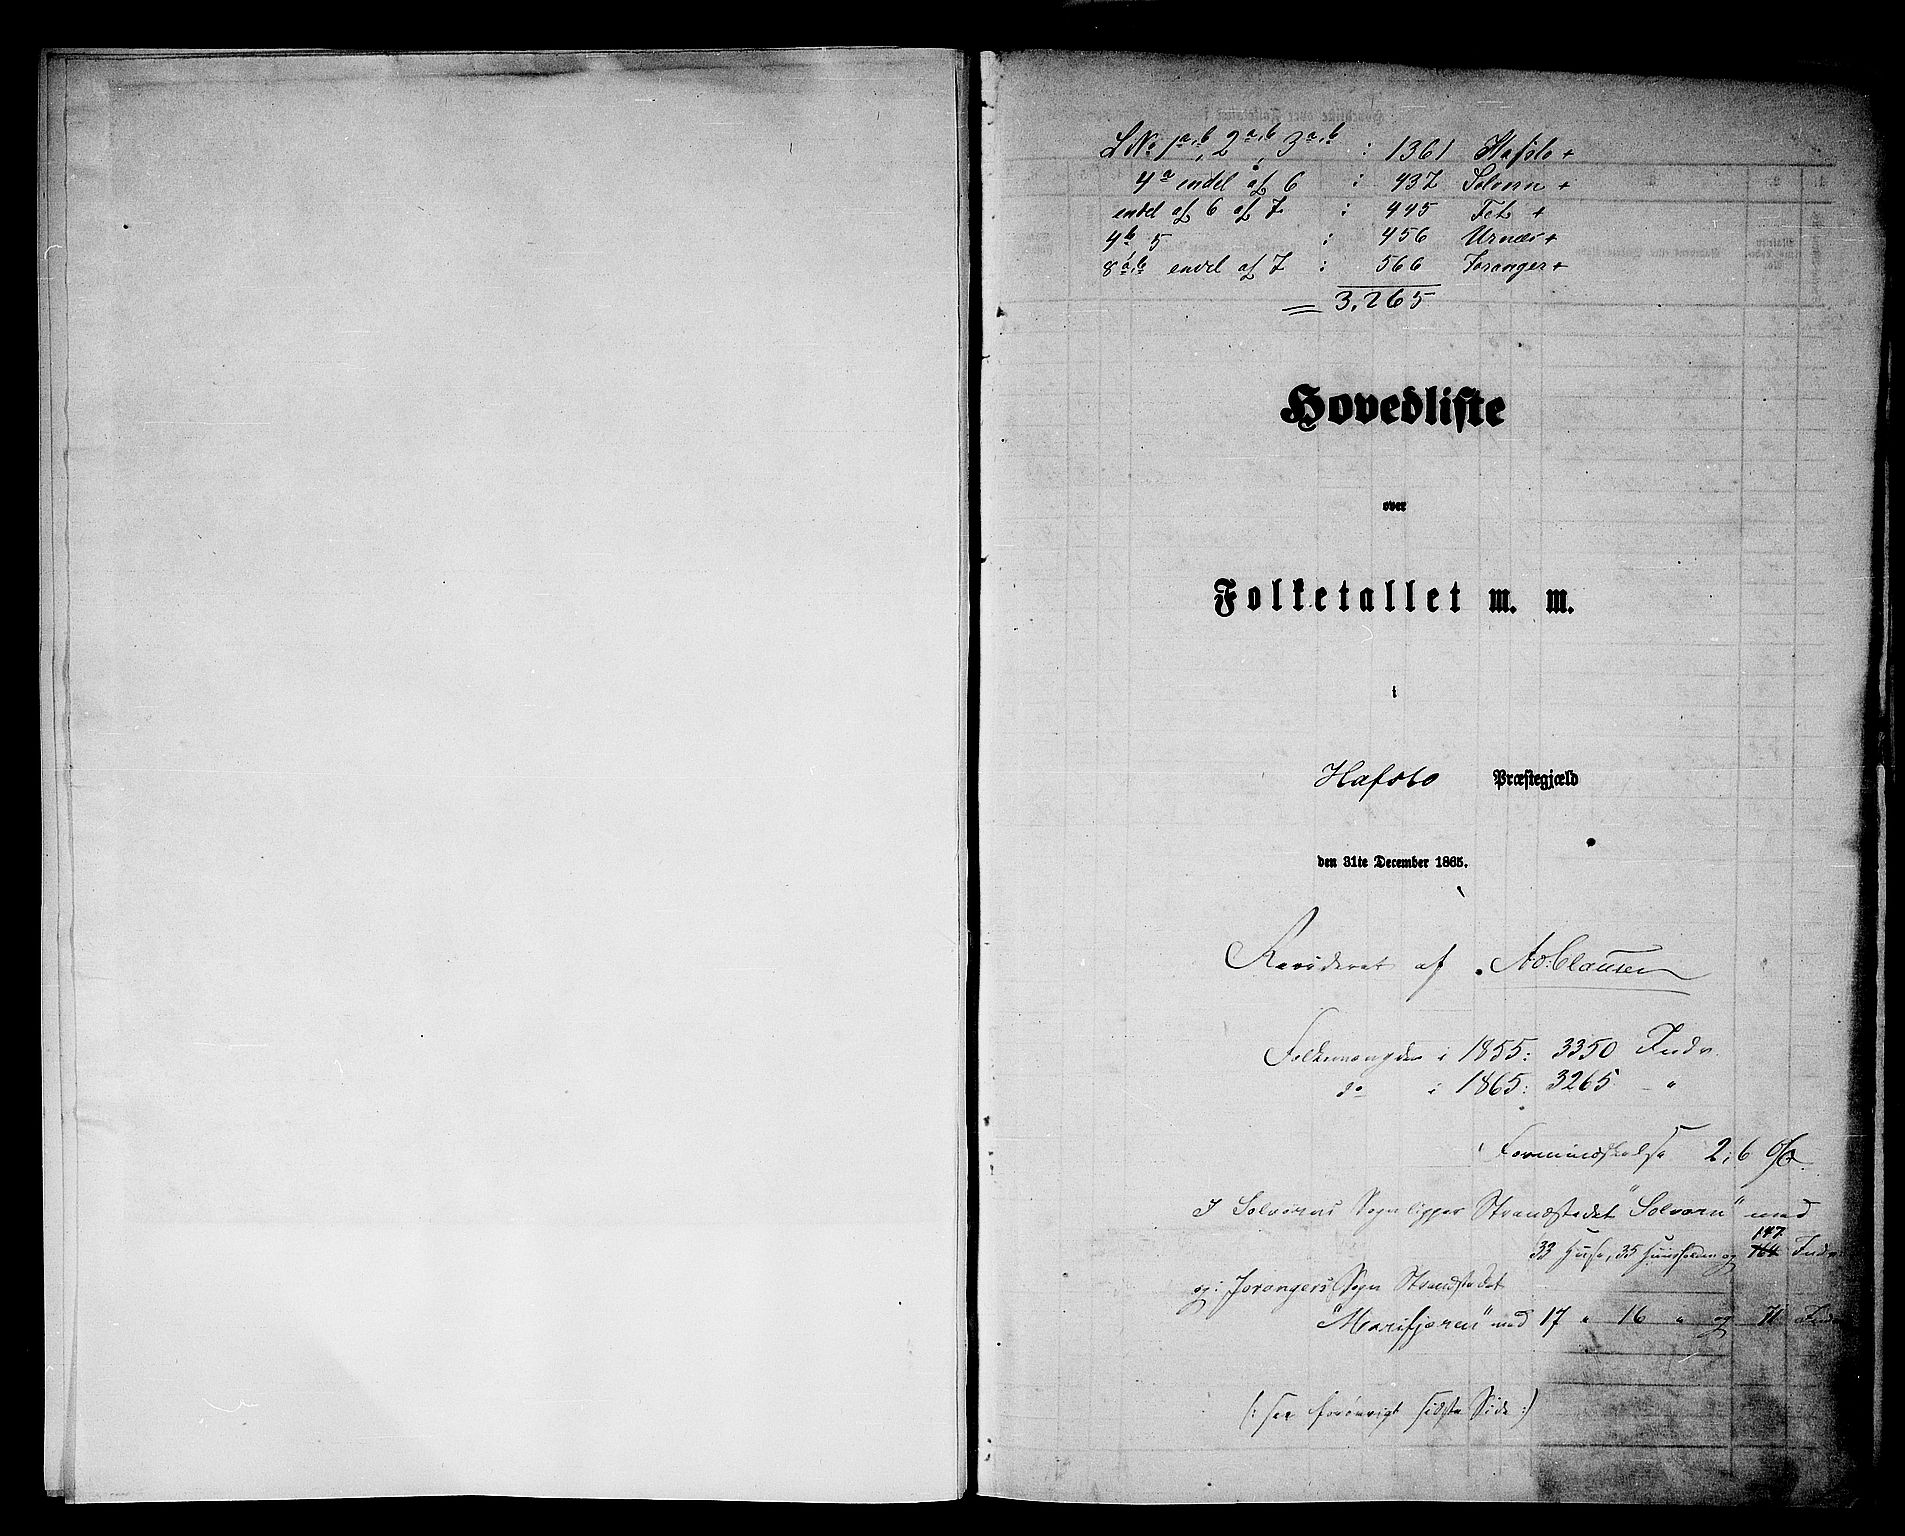 L No 1a,b, 2a,b, 3a,b : 1361 Hafslo +
4a endel af 6 : 437 Solvorn +
endel af 6 of 7 : 445 Fet +
4b, 5 : 456 Urnæs +
8a,b endel af 7 : 566 Joranger +
= 3,265
Hovedliste
over
Folketallet m. m.
i
Hafslo Præstegjæld
den 31te December 1865.
Revideret af Clausen
Folkemængden i 1855: 3350 Indv.
do i 1865: 3265 - "
Formindskelse 2,6 %
I Solvorns Sogn ligger Strandstedet "Solvorn" med
33 Huse, 35 Huusholdn og 164 147 Indv.
og i Jorangers Sogn Strandstedet
"Marifjæren" med 17 " 16 " og 71 Indv.
(: see forøvrigt sidste Side :)